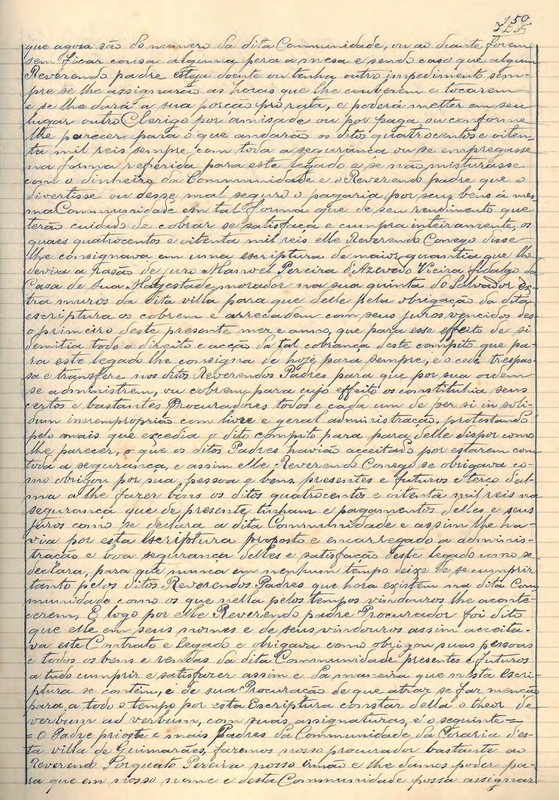 150
que agora são do numero da dita Communidade, ou ao diante forem
sem ficar cousa alguma pera a mesa e sendo caso que algum
Reverendo padre esteja doente ou tenha outro impedimento sem-
pre se lhe assignarão as horas que lhe couberem e tocarem
e se lhe dará a sua porcão pro rata, e poderá metter em seu
lugar outro Clerigo por amisade ou por paga, ou conforme
lhe parecer, para o que andarão os ditos quatrocentos e oiten-
ta mil reis sempre com toda a segurança ou se empregasse
na forma referida para este legado e se não misturasse
com o dinheiro da Communidade e o Reverendo padre que o
divertisse ou desse mal seguro o pagaria por seus bens á mes-
ma Communidade em tal forma que de seu rendimento que
terão cuidado de cobrar se satisfaça e cumpra inteiramente, os
quaes quatrocentos e oitenta mil reis elle Reverendo Conego disse
lhe consignava em uma escriptura de maior quantia que lhe
devia a rasão de juro Manoel Pereira d'Azevedo Vieira fidalgo da
Casa de Sua Magestade, morador na sua quinta do Salvador ex-
tra muros da dita villa para que delle pela obrigação da dita
escriptura os cobrem e arrecadem com seus juros vencidos des-
o primeiro deste presente mez e anno, que para esse effeito de si
demitia todo o direito e acção da tal cobrança deste computo que pa-
ra este legado lhe consigna de hoje para sempre, e o cede trespas-
sa e transfere nos ditos Reverendos Padres para que por sua ordem
se administrem, ou cobrem, para cujo effeito os constitubia seus
certos e bastantes Procuradores todos e cada um de per si in soli-
dum in rem propriam com livre e geral administração, protestando
pelo mais que excedia o dito computo para para delle dispor como
lhe parecer, o que os ditos Padres havião acceitado por estarem com
toda a segurança, e assim elle Reverendo Conego se obrigava co-
mo obrigou por sua pessoa e bens presentes e futuros e terço d'al-
ma a lhe fazer bons os ditos quatrocentos e oitenta mil reis na
segurança que de presente tinham e pagamentos delles e seus
juros como se declara a dita Communidade e assim lhe ha-
via por esta escriptura proposto e encarregado a adminis-
tração e boa segurança delles e satisfação deste legado como se
declara, para que nunca em nenhum tempo deixe de se cumprir
tanto pelos ditos Reverendos Padres que hora existem na dita Com-
munidade como os que nella pelos tempos vindouros lhe aconte-
cerem, E logo por elle Reverendo padre Procurador foi dito
que elle em seus nomes e de seus vindouros assim acceita-
va este Contrato e Legado e obrigava como obrigou suas pessoas
e todos os bens e rendas da dita Communidade presentes e futuros
a tudo cumprir e satisfazer assim e da maneira que nesta escri-
ptura se contem, e de sua Procuração de que atraz se faz menção
para a todo o tempo por esta Escriptura constar della o theor de
verbum ad verbum, com suas assignaturas, é o seguinte =
= O Padre prioste e mais Padres da Communidade da Coraria d'es-
ta villa de Guimarães, faremos nosso procurador bastante ao
Reverendo Torquato Pereira nosso irmão e lhe damos poder pa-
ra que em nosso nome e desta Communidade possa assignar